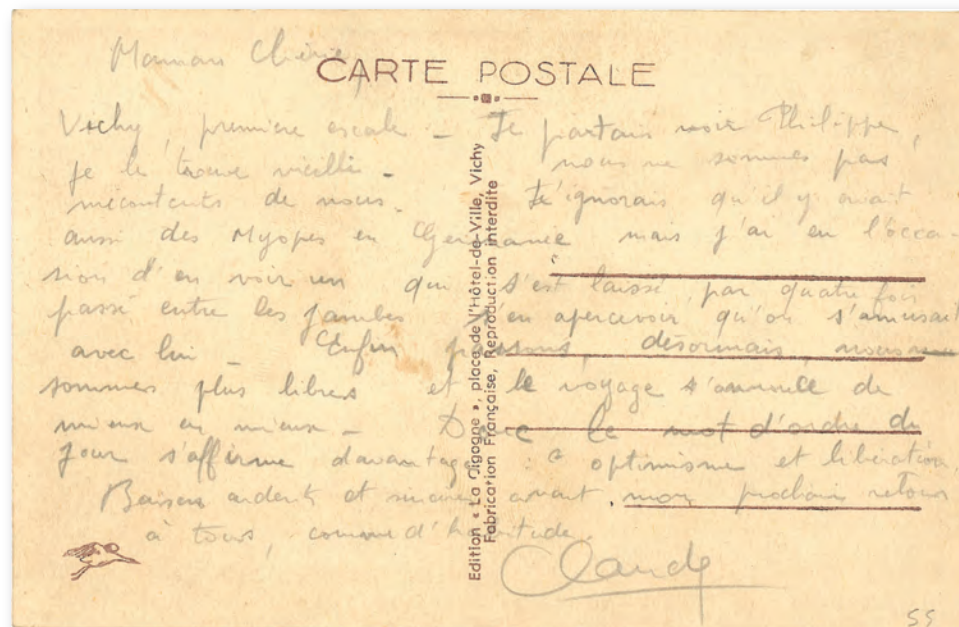 Maman Chérie,
CARTE POSTALE
Vichy, première escale – Je partais voir Philippe,
je le trouve vieilli – nous ne sommes pas
mécontents de nous. J'ignorais qu'il y avait
aussi des Myopes en Germanie mais j'ai eu l'occa-
sion d'en voir un qui s'est laissé, par quatre fois
passé entre les jambes s'en apercevoir qu'on s'amusait
avec lui – Enfin passons, désormais, nous
sommes plus libres et le voyage s'annonce de
mieux en mieux – Donc le mot d'ordre du
jour s'affirme davantage : " optimisme et libération,
Baisers ardents et avant mon prochain retour
à tous, comme d'habitude.
Claude
Edition « La Cigogne », place de l'Hôtel-de-Ville, Vichy
Fabrication Française, Reproduction interdite
55